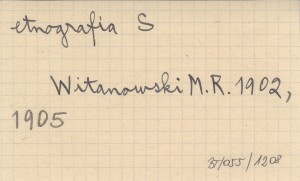 etnografia S
Witanowski M.R. 1902,
1905
35/055/1208